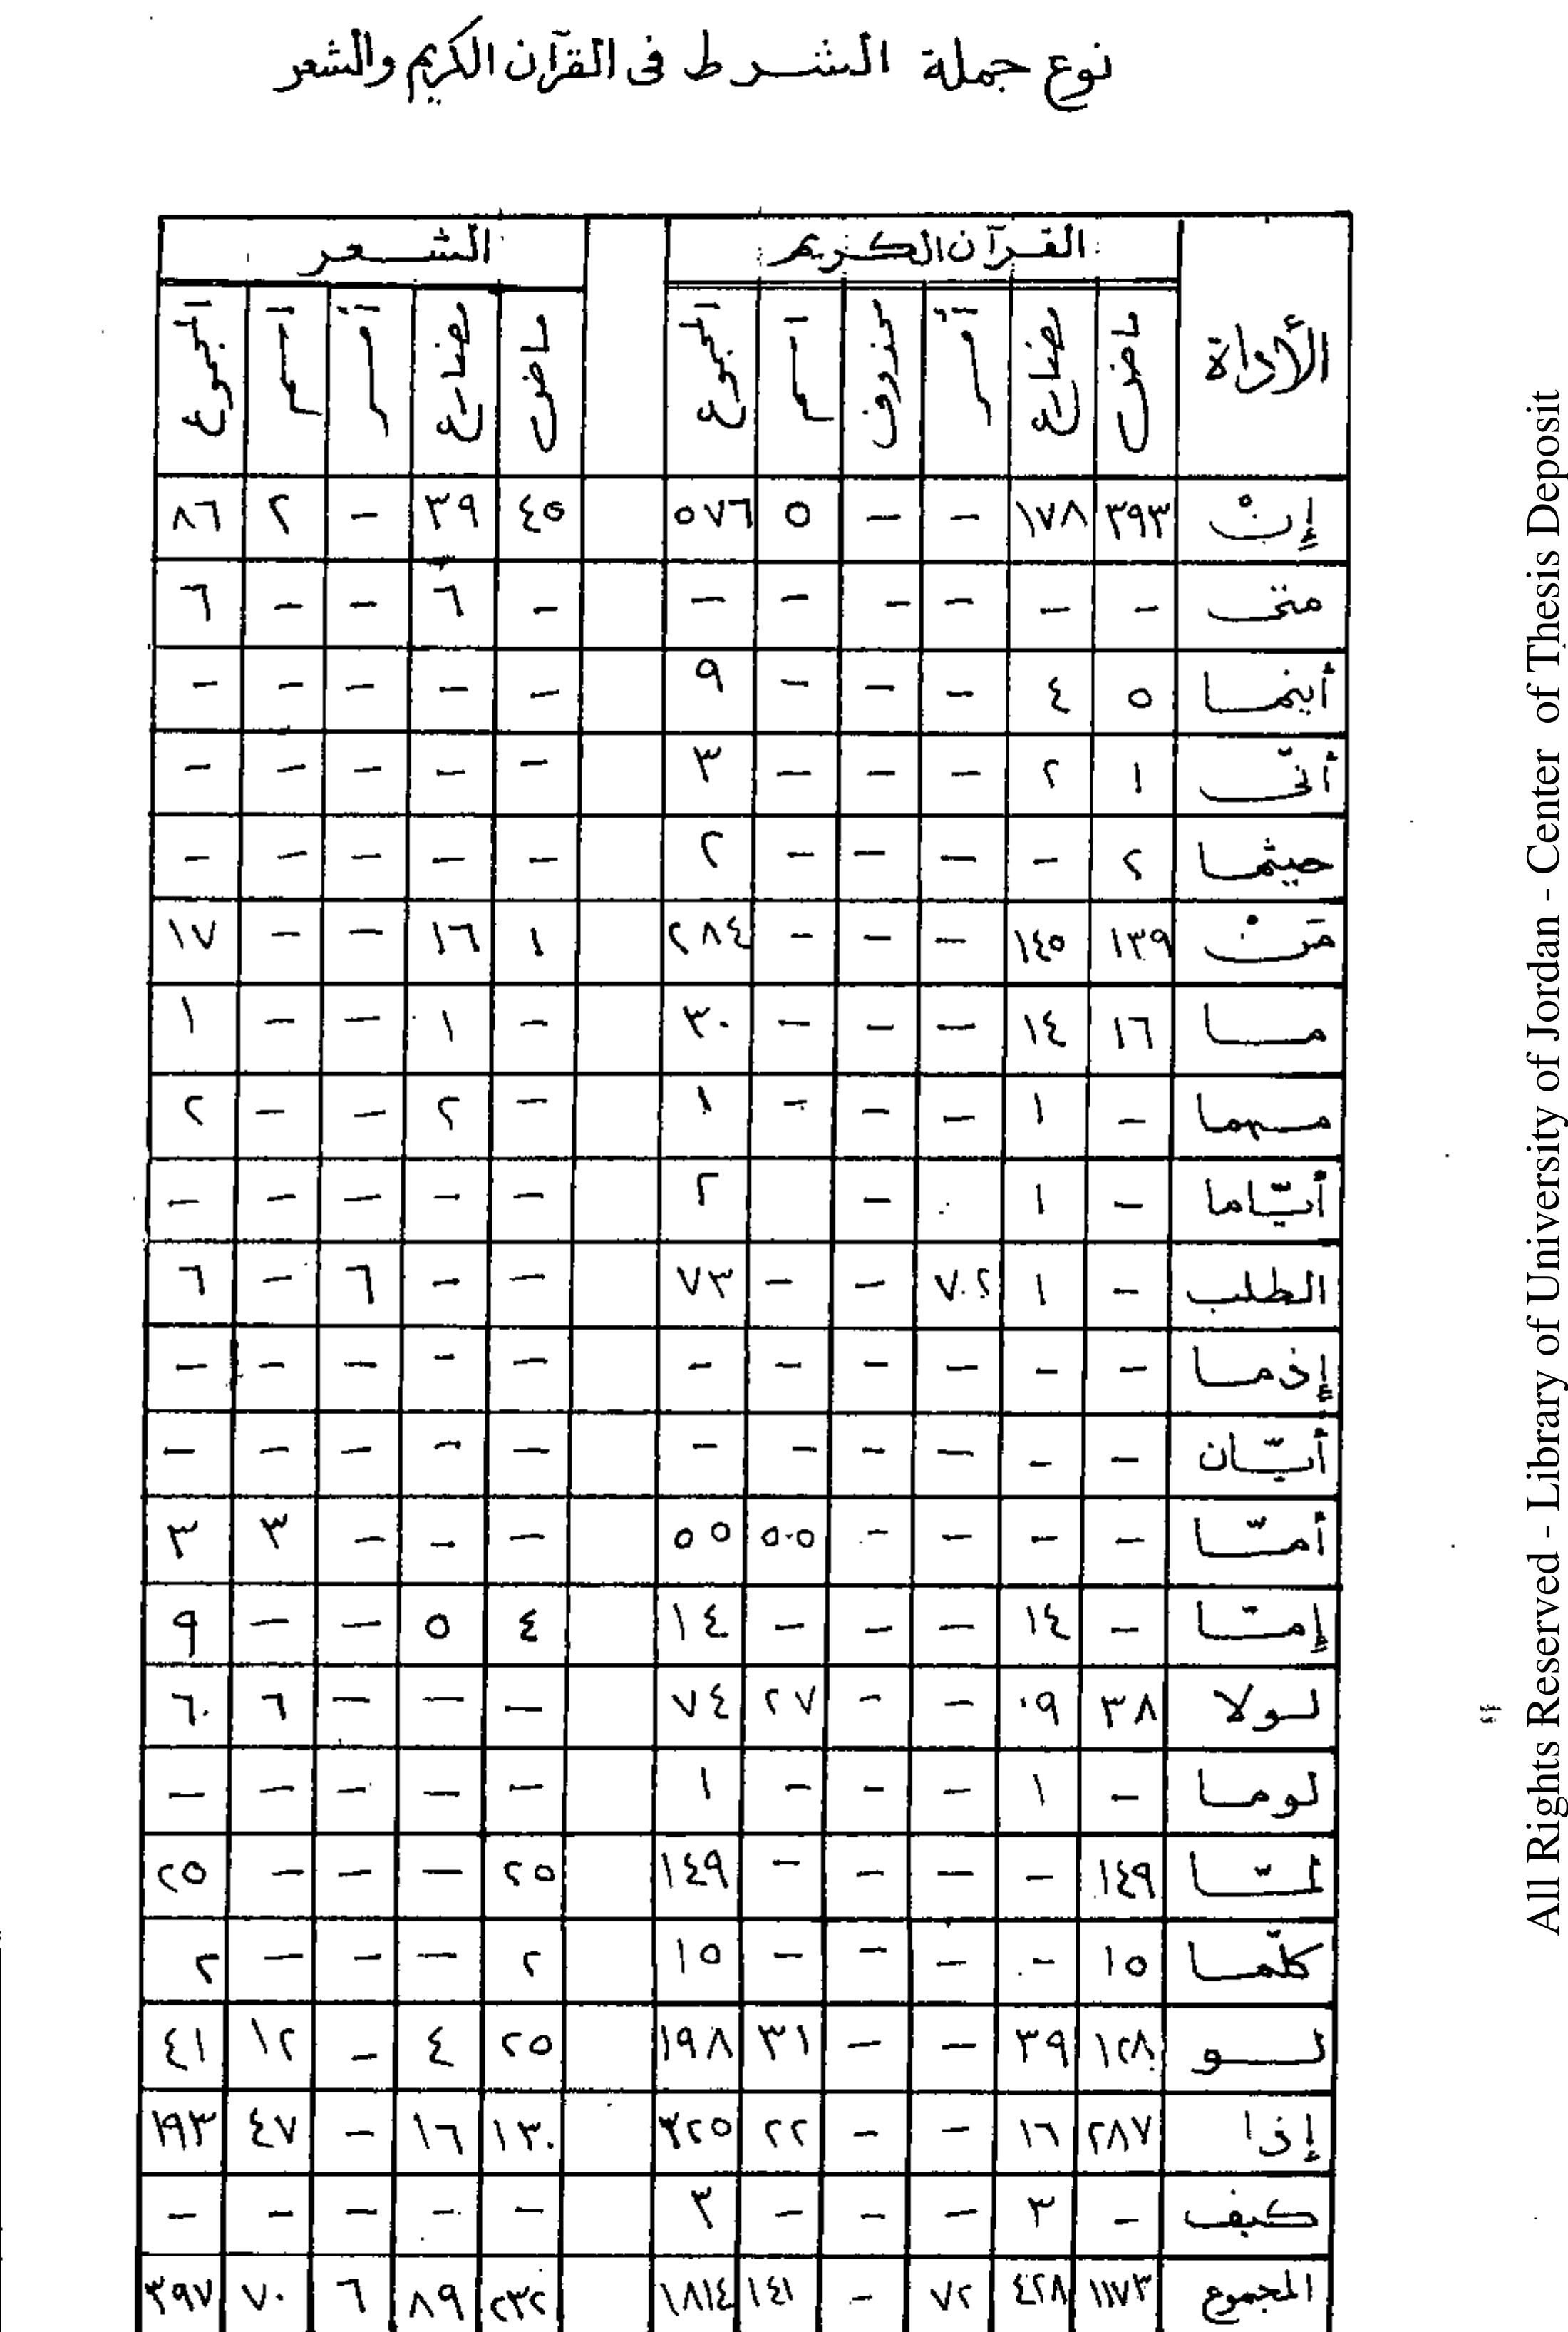 نوع جملة الشرط فى القرآن الكريم والشعر
الأداة القرآن الكريم الشعر
ماضى مضارع أمر محذوف اسم المجموع ماضى مضارع أمر اسم المجموع
إنْ ٣٩٣ ١٧٨ - - ٥ ٥٧٦ ٤٥ ٣٩ - ٢ ٨٦
متى - - - - - - - ٦ - - ٦
أينما ٥ ٤ - - - ٩ - - - - -
أنّى ١ ٢ - - - ٣ - - - - -
حيثما ٢ - - - - ٢ - - - - -
مَنْ ١٣٩ ١٤٥ - - - ٢٨٤ ١ ١٦ - - ١٧
مـا ١٦ ١٤ - - - ٣٠ - ١ - - ١
مهما - ١ - - - ١ - ٢ - - ٢
أيّاما - ١ - ٢ - - - - -
الطلب - ١ ٧٢ - - ٧٣ - - ٦ - ٦
إذما - - - - - - - - - - -
أيّان - - - - - - - - - - -
أمّا - - - - ٥٥ ٥٥ - - - ٣ ٣
إمّا - ١٤ - - - ١٤ ٤ ٥ - - ٩
لولا ٣٨ ٠٩ - - ٢٧ ٧٤ - - - ٦ ٦
لوما - ١ - - - ١ - - - - -
لمّا ١٤٩ - - - - ١٤٩ ٢٥ - - - ٢٥
كلّما ١٥ - - - - ١٥ ٢ - - - ٢
لـو ١٢٨ ٣٩ - - ٣١ ١٩٨ ٢٥ ٤ - ١٢ ٤١
إذا ٢٨٧ ١٦ - - ٢٢ ٣٢٥ ١٣٠ ١٦ - ٤٧ ١٩٣
كيف - ٣ - - - ٣ - - - - -
المجموع ١١٧٣ ٤٢٨ ٧٢ - ١٤١ ١٨١٤ ٢٣٢ ٨٩ ٦ ٧٠ ٣٩٧
All Rights Reserved - Library of University of Jordan - Center of Thesis Deposit